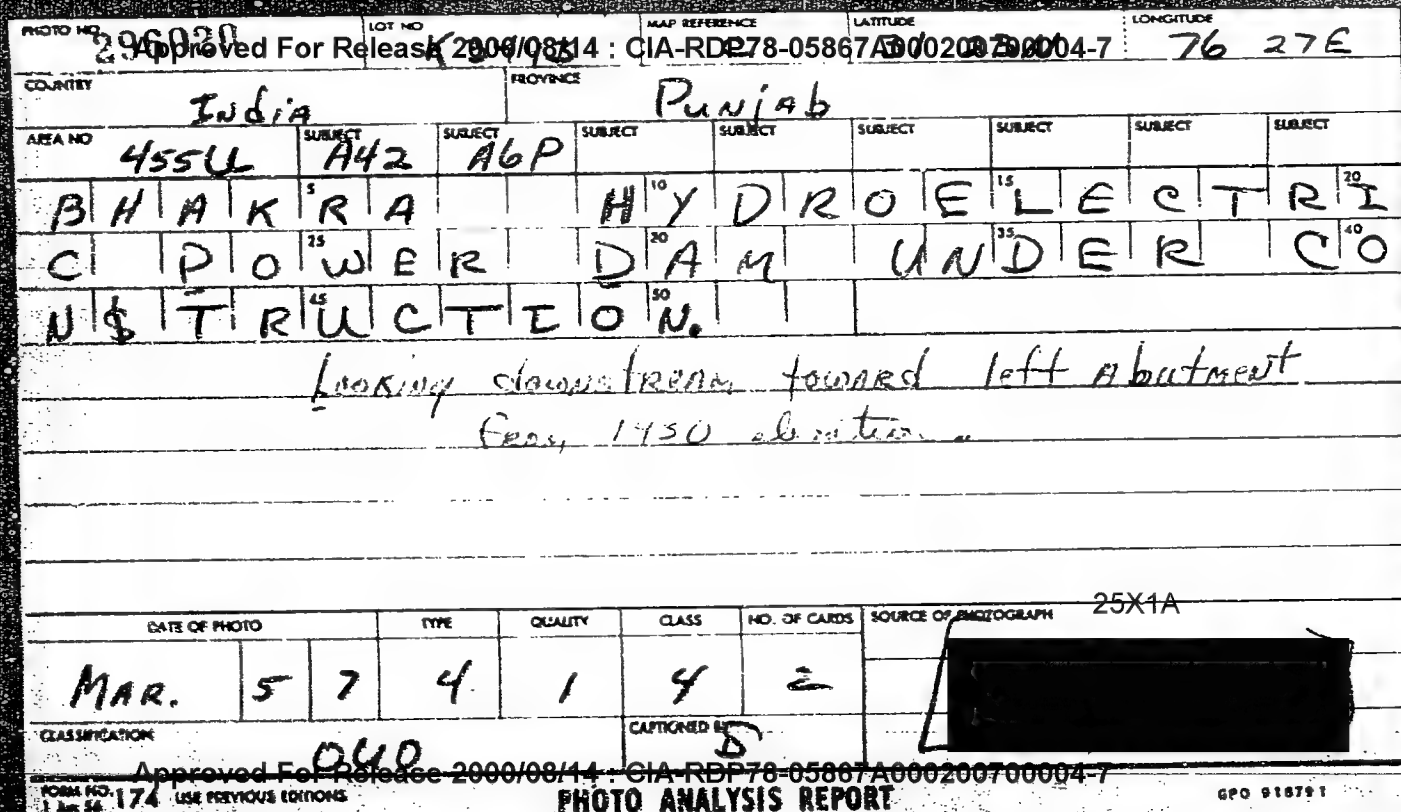 PHOTO NO. 296020 LOT NO MAP REFERENCE LATITUDE LONGITUDE 76 27E
Approved For Release 2000/08/14 : CIA-RDP78-05867A000200700004-7
COUNTRY India PROVINCE Punjab
AREA NO 455U SUBJECT A42 SUBJECT A6P SUBJECT SUBJECT SUBJECT SUBJECT SUBJECT SUBJECT
BHAKRA HYDROELECTRI
C POWER DAM UNDER CO
N$TRUCTION.
5 10 15 20
25 30 35 40
45 50
Looking downstream toward left Abutment
from 1450 elevation.
25X1A
DATE OF PHOTO TYPE QUALITY CLASS NO. OF CARDS SOURCE OF PHOTOGRAPH
MAR. 5 7 4 1 4 2
CLASSIFICATION OUO CAPTIONED BY D
Approved For Release 2000/08/14 : CIA-RDP78-05867A000200700004-7
FORM NO. 174 USE PREVIOUS EDITIONS PHOTO ANALYSIS REPORT GPO 918791
1 Jun 56